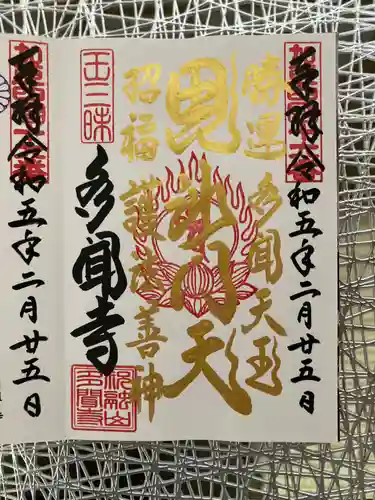 奉拝 令和五年二月廿五日
勝運 多聞天王
毘沙門天
招福 護法善神
多聞寺
奉拝 令和五年二月廿五日